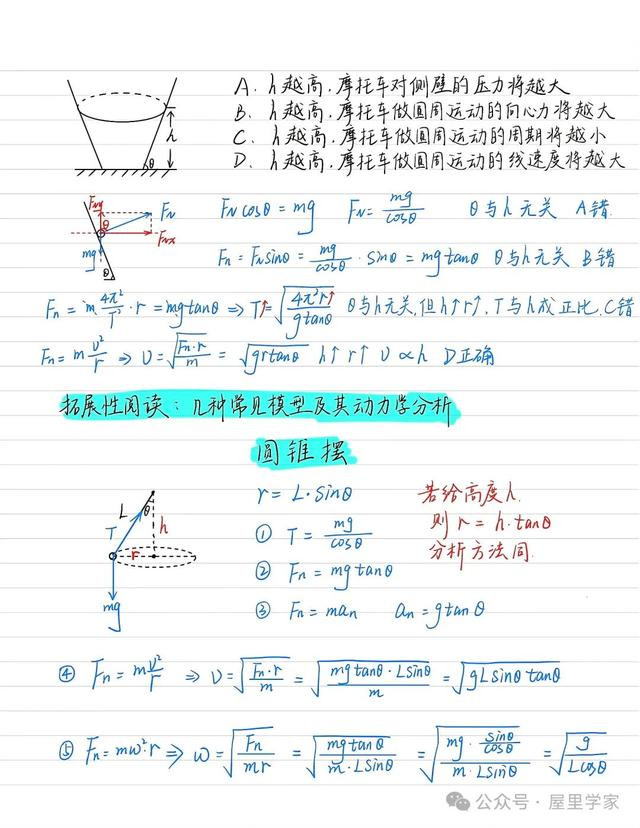 A. h越高,摩托车对侧壁的压力将越大
B. h越高,摩托车做圆周运动的向心力将越大
C. h越高,摩托车做圆周运动的周期将越小
D. h越高,摩托车做圆周运动的线速度将越大
h
θ
FNy FN
θ FNx
mg
θ
FN cosθ = mg FN = mg/cosθ θ与h无关 A错.
Fn = FN sinθ = mg/cosθ · sinθ = mg tanθ θ与h无关 B错
Fn = m 4π²/T² · r = mg tanθ ⇒ T↑ = √(4π²r↑/g tanθ) θ与h无关,但h↑r↑,T与h成正比,C错
Fn = m v²/r ⇒ v = √(Fn·r/m) = √(gr tanθ) h↑ r↑ v∝h D正确
拓展性阅读:几种常见模型及其动力学分析
圆锥摆
L θ
T h
r
mg
r = L·sinθ
① T = mg/cosθ
② Fn = mg tanθ
③ Fn = man an = g tanθ
若给高度h.
则 r = h·tanθ
分析方法同.
④ Fn = m v²/r ⇒ v = √(Fn·r/m) = √(mg tanθ · L sinθ/m) = √(gL sinθ tanθ)
⑤ Fn = mω²·r ⇒ ω = √(Fn/mr) = √(mg tanθ/m·L sinθ) = √(mg · sinθ/cosθ/m·L sinθ) = √(g/L cosθ)
公众号·屋里学家